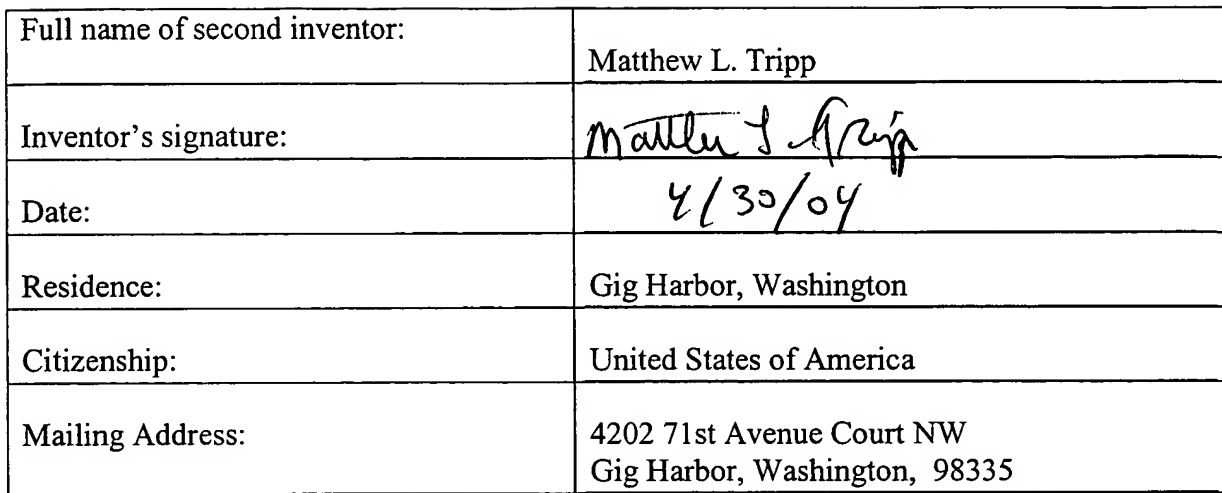 Full name of second inventor:
Matthew L. Tripp
Inventor's signature:
Matthew L Tripp
Date:
4/30/04
Residence:
Gig Harbor, Washington
Citizenship:
United States of America
Mailing Address:
4202 71st Avenue Court NW
Gig Harbor, Washington, 98335